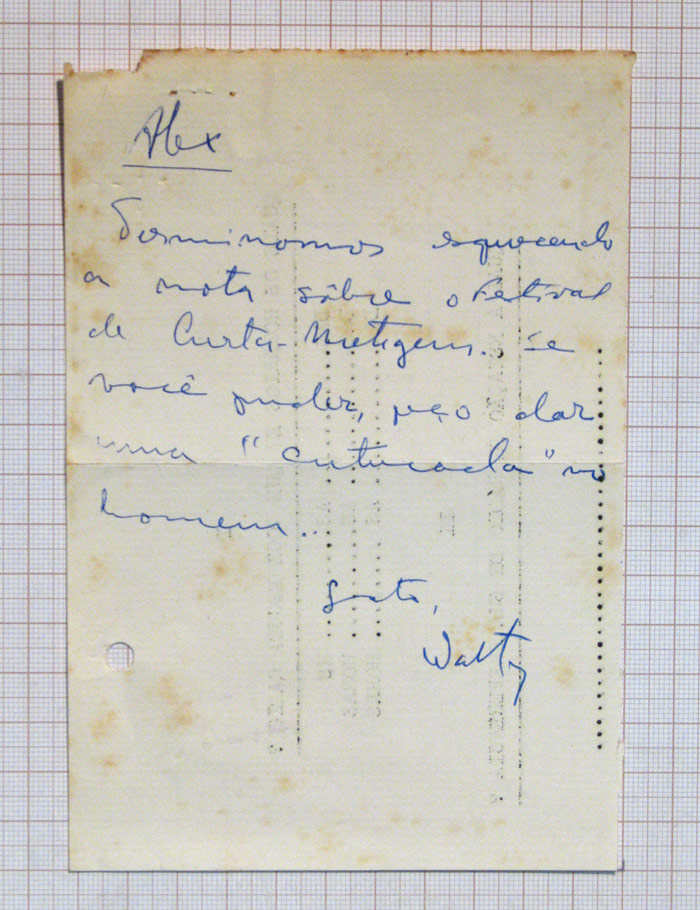 Alex
Terminamos esquecendo
a nota sôbre o Festival
de Curta-Metragem. Se
você puder, peço dar
uma "cutucada" no
homem..
Grato,